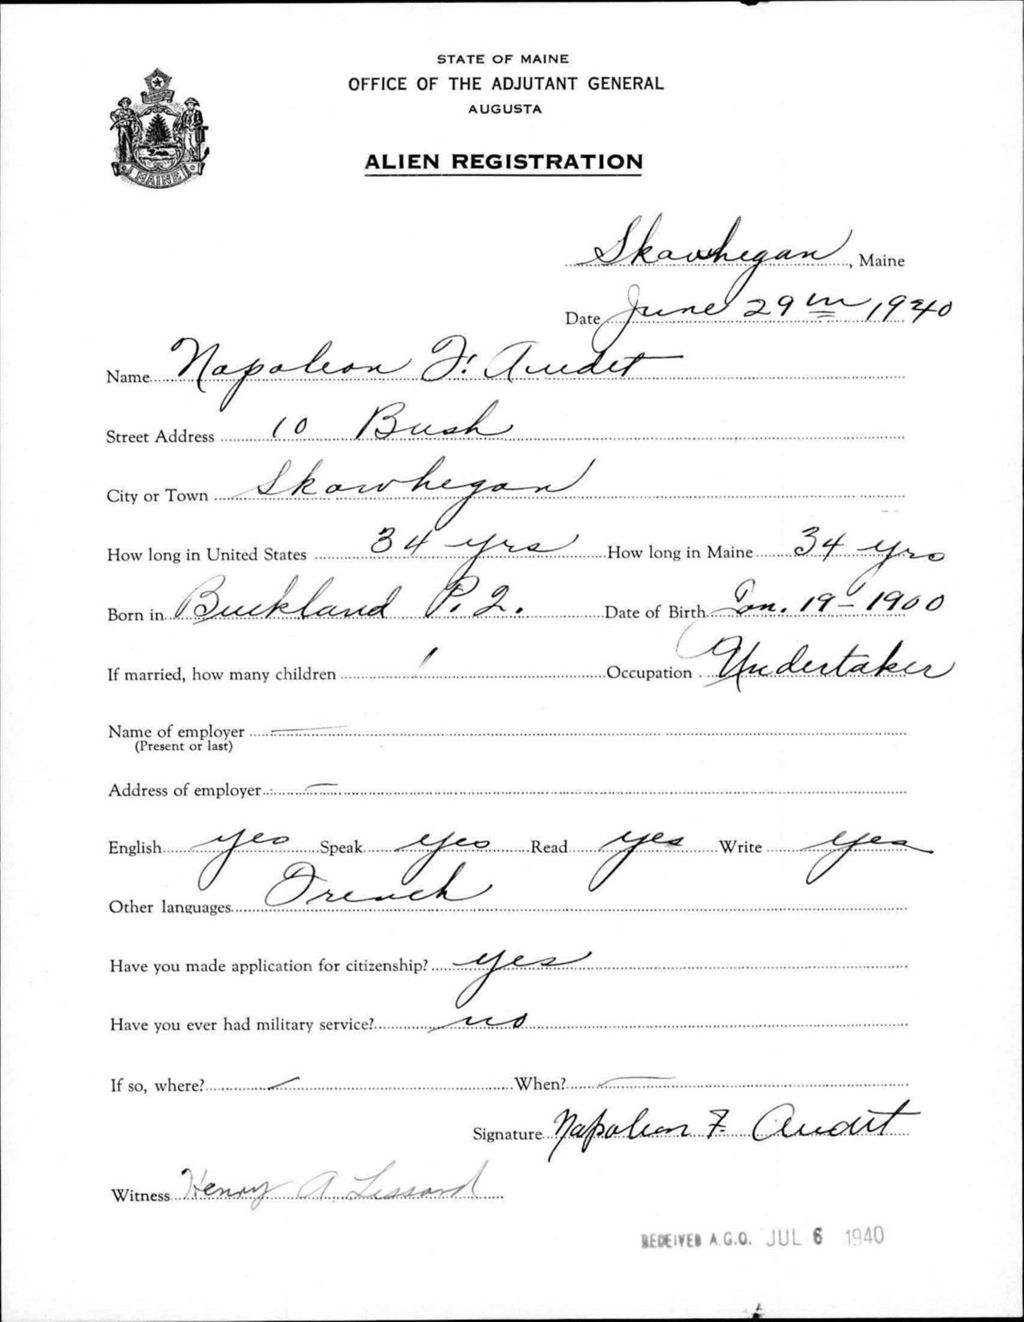 STATE OF MAINE
OFFICE OF THE ADJUTANT GENERAL
AUGUSTA
ALIEN REGISTRATION
MAINE
Skowhegan, Maine
Date June 29th 1940
Name Napoleon F. Audet
Street Address 10 Bush
City or Town Skowhegan
How long in United States 34 yrs How long in Maine 34 yrs
Born in Buckland P.Q. Date of Birth Jan. 19 - 1900
If married, how many children 1 Occupation Undertaker
Name of employer —
(Present or last)
Address of employer —
English yes Speak yes Read yes Write yes
Other languages French
Have you made application for citizenship? yes
Have you ever had military service? no
If so, where? — When? —
Signature Napoleon F. Audet
Witness Henry A Lessard
RECEIVED A.G.O. JUL 6 1940